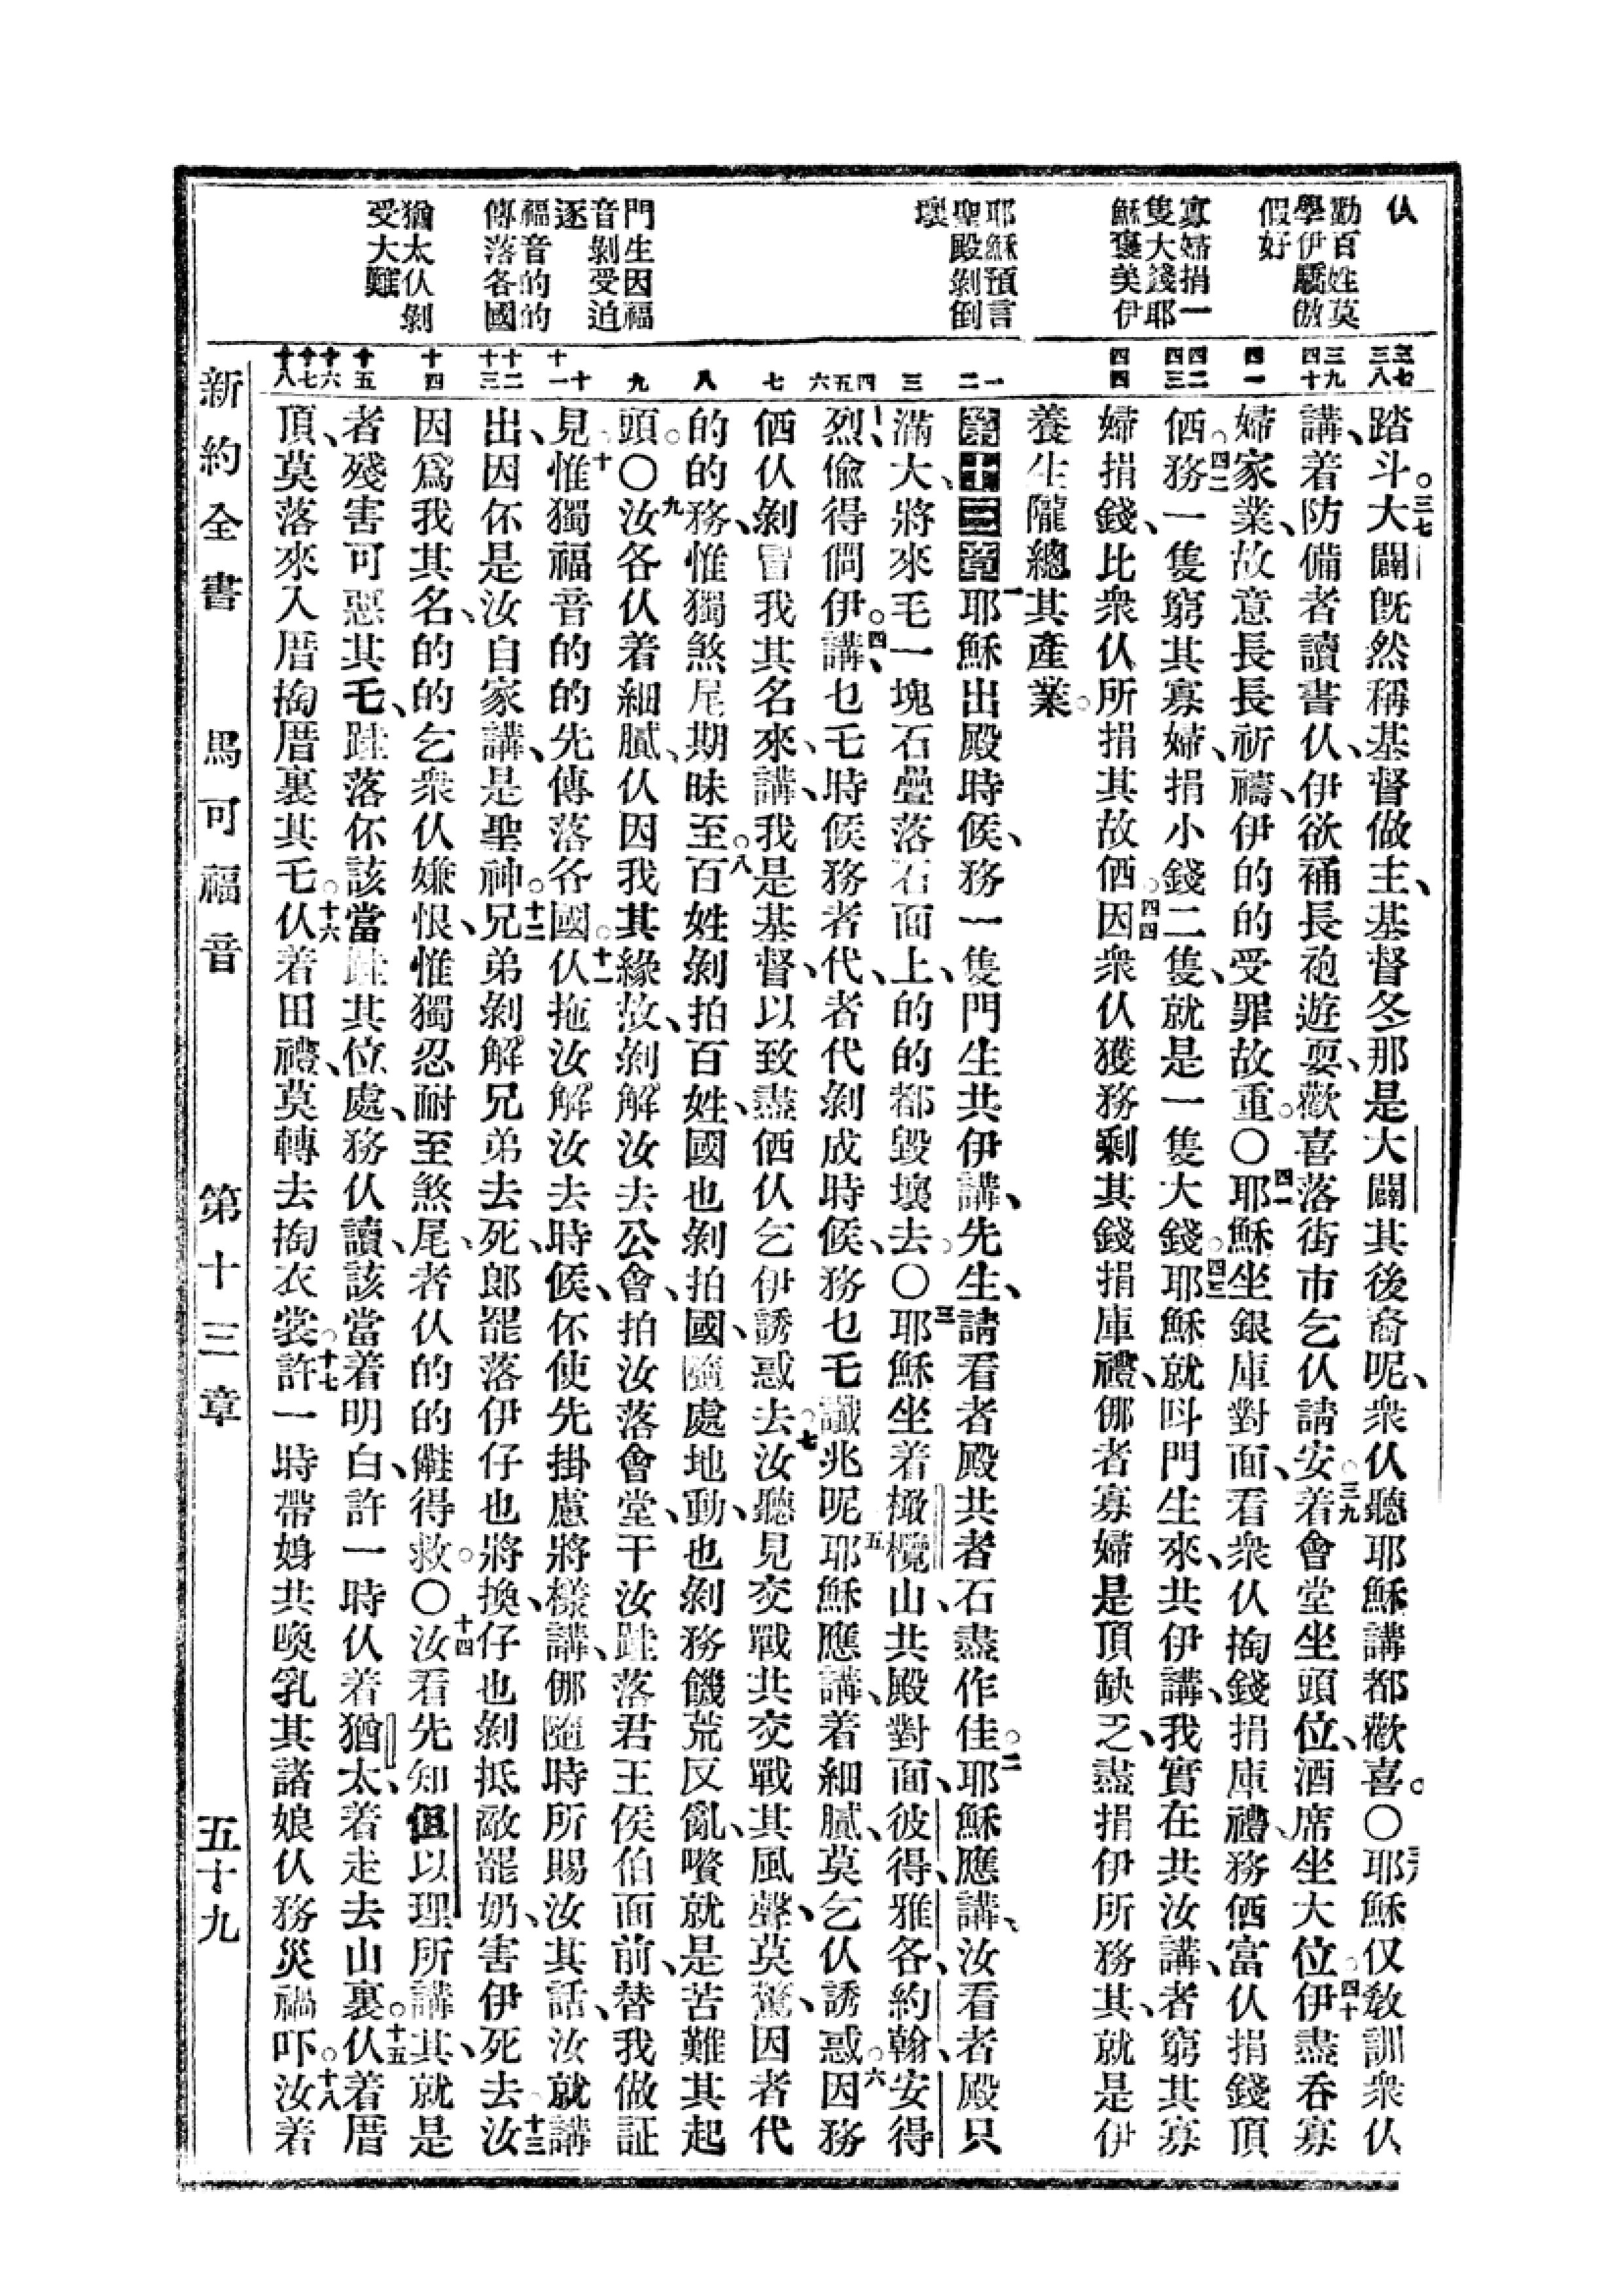 仫
勸百姓莫
學伊驕傲
假好
寡婦捐一
隻大錢耶
穌褒美伊
耶穌預言
聖殿剝倒
壞
門生因福
音剝受迫
逐
福音的的
傳落各國
猶太仫剝
受大難
三七
三八
三九
四十
四一
四二
四三
四四
一
二
三
四
五
六
七
八
九
十
十一
十二
十三
十四
十五
十六
十七
十八
踏斗。三七大闢旣然稱基督做主、基督冬那是大闢其後裔呢、衆仫聽耶穌講都歡喜。〇三八耶穌仅敎訓衆仫
講、着防備者讀書仫、伊欲𧙕長袍遊耍、歡喜落街市乞仫請安。三九着會堂坐頭位、酒席坐大位。四十伊盡吞寡
婦家業、故意長長祈禱、伊的的受罪故重。〇四一耶穌坐銀庫對面、看衆仫掏錢捐庫禮、務𠍇富仫捐錢頂
𠍇。四二務一隻窮其寡婦、捐小錢二隻、就是一隻大錢。四三耶穌就呌門生來、共伊講、我實在共汝講、者窮其寡
婦捐錢、比衆仫所捐其故𠍇。四四因衆仫獲務剩其錢捐庫禮、𠁞者寡婦是頂缺乏、盡捐伊所務其、就是伊
養生隴總其產業。
第十三章一耶穌出殿時候、務一隻門生共伊講、先生、請看者殿共者石盡作佳。二耶穌應講、汝看者殿只
滿大、將來毛一塊石疊落石面上、的的都毀壞去。〇三耶穌坐着橄欖山、共殿對面、彼得、雅各、約翰、安得
烈、偸得問伊。四講、乜乇時候務者代、者代剝成時候、務乜乇讖兆呢。五耶穌應講、着細膩、莫乞仫誘惑。六因務
𠍇仫剝冒我其名來、講、我是基督、以致盡𠍇仫乞伊誘惑去。七汝聽見交戰共交戰其風聲、莫驚、因者代
的的務、惟獨煞尾期昧至。八百姓剝拍百姓、國也剝拍國、隨處地動、也剝務饑荒反亂、嚽就是苦難其起
頭。〇九汝各仫着細膩、仫因我其緣故、剝解汝去公會、拍汝落會堂、干汝跬落君王侯伯面前、替我做証
見。十惟獨福音的的先傳落各國。十一仫拖汝解汝去時候、伓使先掛慮將樣講、𠁞隨時所賜汝其話、汝就講
出、因伓是汝自家講、是聖神。十二兄弟剝解兄弟去死、郎罷落伊仔也將換、仔也剝抵敵罷奶、害伊死去。十三汝
因爲我其名、的的乞衆仫嫌恨、惟獨忍耐至煞尾、者仫的的𠍠得救。〇十四汝看先知但以理所講其、就是
者殘害可惡其乇、跬落伓該當跬其位處、務仫讀、該當着明白、許一時仫着猶太、着走去山裏。十五仫着厝
頂、莫落來入厝掏厝裏其乇。十六仫着田禮、莫轉去掏衣裳。十七許一時帶娠共喚乳其諸娘仫務災禍吓。十八汝着
新約全書 馬可福音 第十三章 五十九